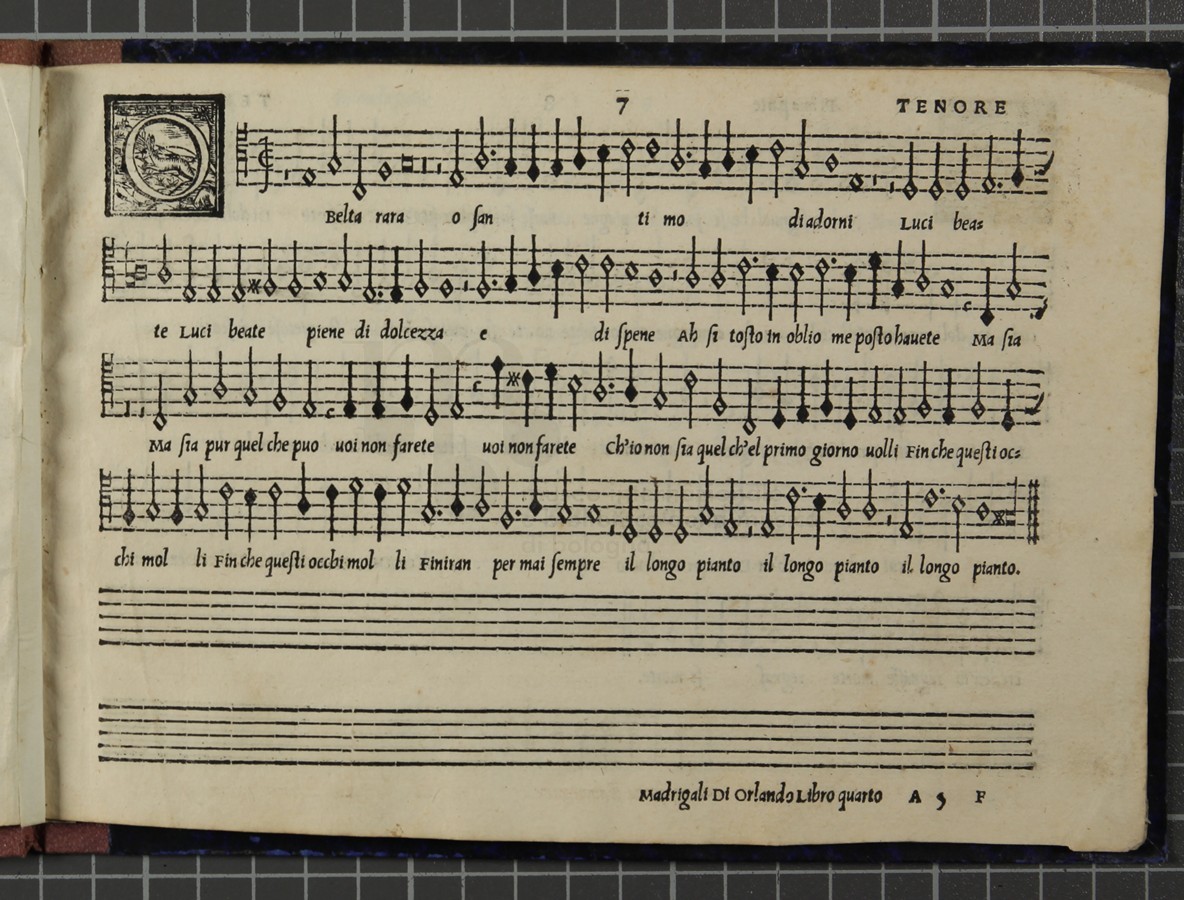 7 TENORE
O Belta rara o ſan ti mo di adorni Luci bea⸗
te Luci beate piene di dolcezza e di ſpene Ah ſi toſto in oblio me poſto hauete Ma ſia
Ma ſia pur quel che puo uoi non farete uoi non farete Ch'io non ſia quel ch'el primo giorno uolli Fin che queſti oc⸗
chi mol li Fin che queſti occhi mol li Finiran per mai ſempre il longo pianto il longo pianto il longo pianto.
Madrigali Di Orlando Libro quarto A 5 F